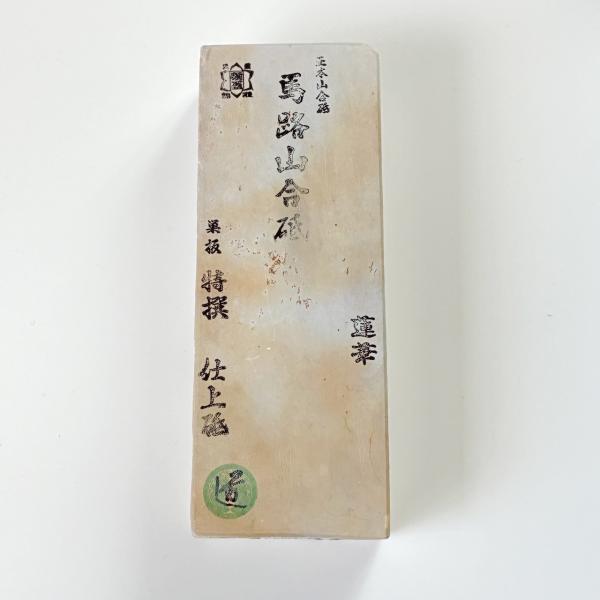 正本山合砥
馬路山合砥
蓮華
巣板 特撰 仕上砥
道